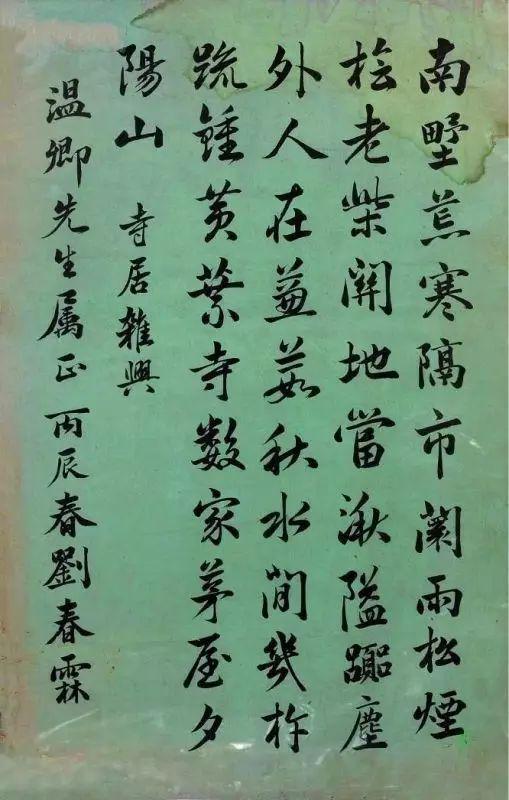 南墅荒寒隔市闤雨松煙
檜老柴關地當湫隘囂塵
外人在蒹葭秋水間幾杵
疏鍾黃葉寺數家茅屋夕
陽山 寺居雜興
温卿先生属正丙辰春劉春霖